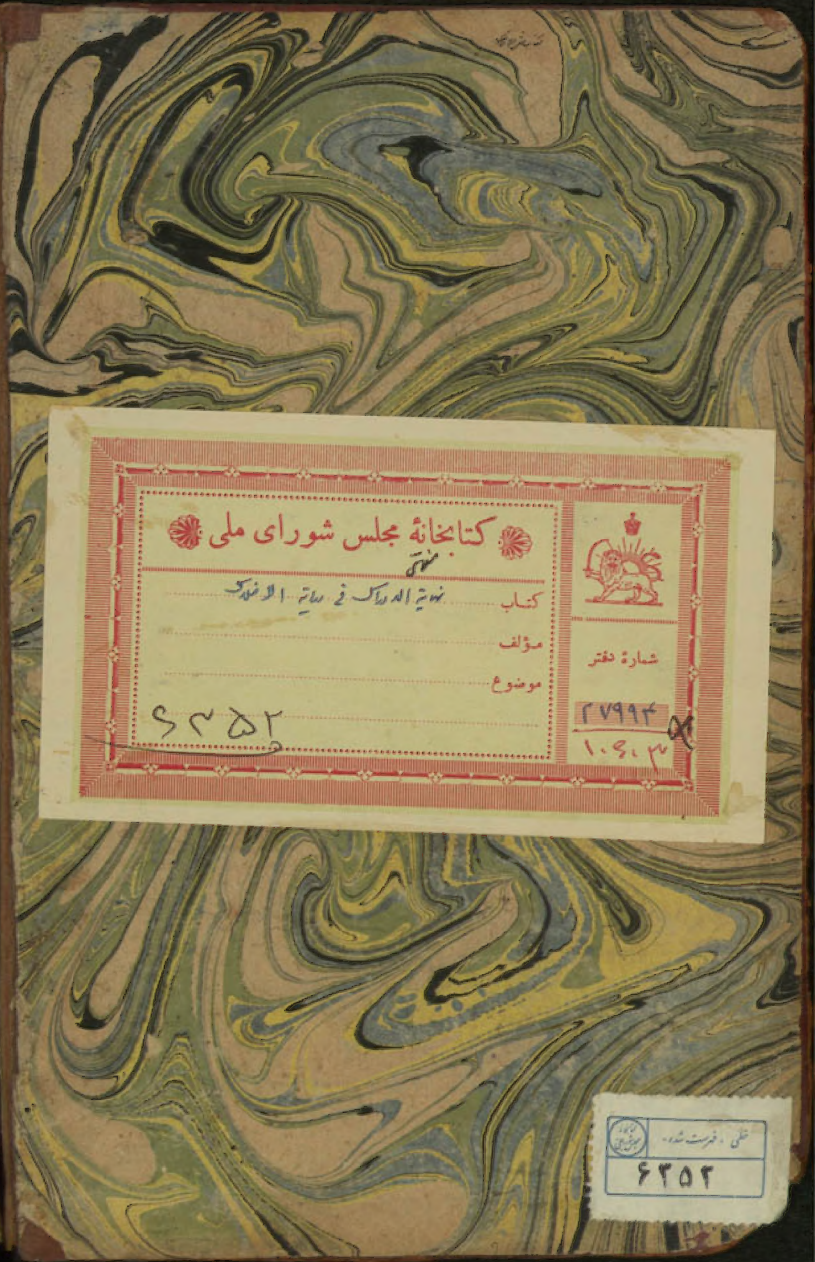 کتابخانهٔ مجلس شورای ملی
منتهی
کتاب نهایة الادراک فی درایة الافلاک
مؤلف
موضوع
۶۳۵۲
شمارهٔ دفتر
۲۷۹۹۴
۱۰۶۰۳
خطی ـ فهرست شده ـ
۶۳۵۲